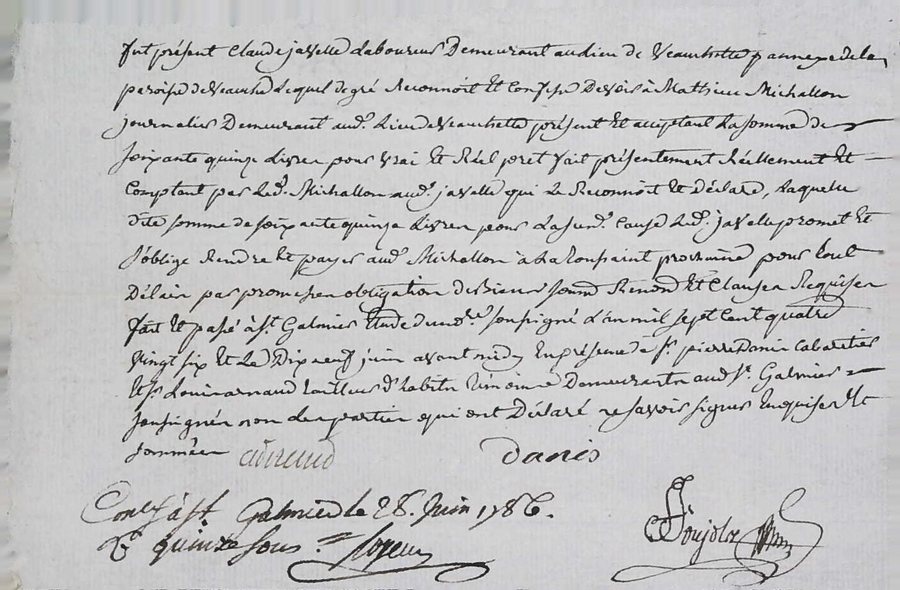 fut présent Claude javelle Laboureur Demeurant au lieu de Veauchette annexe de la
paroisse de veauche Lequel de gré Reconnoit Et Confesse Devoir à Mathieu Michallon
journalier Demeurant aud. Lieu de veauchette présent Et acceptant La somme de
soixante quinze Livres pour vrai Et Réel prêt fait présentement Réellement Et
Comptant par Led. Michallon aud. javelle qui Le Reconnoit Et Déclare, Laquelle
dite somme de soixante quinze Livres pour La susd. Cause Led. javelle promet Et
s'oblige Rendre Et payer aud. Michallon à La toussaint prochaine pour tout
Délaix par promesses obligation de Biens soumis Renond. Et Clauses Requises
fait Et passé à St. Galmier Etude du no.re soussigné L'an mil sept Cent quatre
vingt six Et Le Dix neuf juin avant midy En présence de Sr. pierre Danis Cabaretier
Et Sr. Louis arnaud tailleur d'habits témoins Demeurants aud. St. Galmier
soussignés non Les parties qui ont Déclaré ne savoir signer Enquises Et
sommées Danis
Con.lé à St. Galmier le 28. Juin 1786.
R. quinze sous